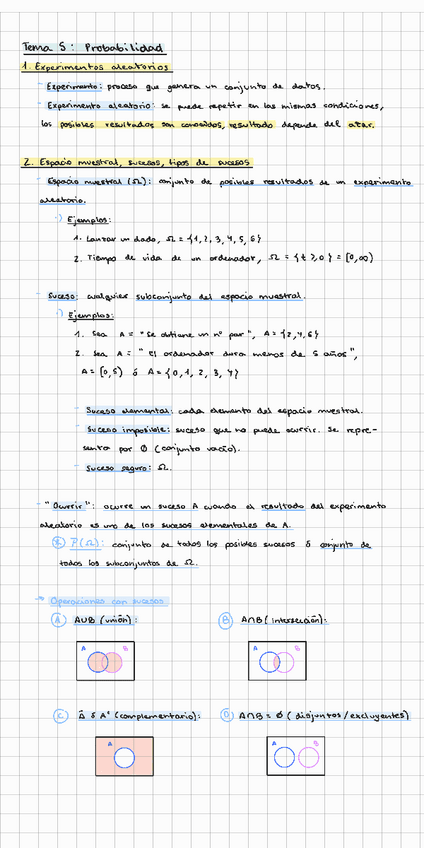 Tema 5: Probabilidad
1. Experimentos aleatorios
- Experimento: proceso que genera un conjunto de datos.
- Experimento aleatorio: se puede repetir en las mismas condiciones,
los posibles resultados son conocidos, resultado depende del azar.
2. Espacio muestral, sucesos, tipos de sucesos
- Espacio muestral (Ω): conjunto de posibles resultados de un experimento
aleatorio.
Ejemplos:
1. Lanzar un dado, Ω = {1, 2, 3, 4, 5, 6}
2. Tiempo de vida de un ordenador, Ω = {t ≥ 0} = [0, ∞)
- Suceso: cualquier subconjunto del espacio muestral.
Ejemplos:
1. Sea A = "Se obtiene un nº par", A = {2, 4, 6}
2. Sea A = "El ordenador dura menos de 5 años",
A = [0, 5) ó A = {0, 1, 2, 3, 4}
- Suceso elemental: cada elemento del espacio muestral.
- Suceso imposible: suceso que no puede ocurrir. Se repre-
senta por Ø (conjunto vacío).
- Suceso seguro: Ω.
- "Ocurrir": ocurre un suceso A cuando el resultado del experimento
aleatorio es uno de los sucesos elementales de A.
P(Ω): conjunto de todos los posibles sucesos ó conjunto de
todos los subconjuntos de Ω.
Operaciones con sucesos
A A∪B (unión): B A∩B (intersección):
A B A B
C Ā ó Aᶜ (complementario): D A∩B = Ø (disjuntos/excluyentes)
A A B